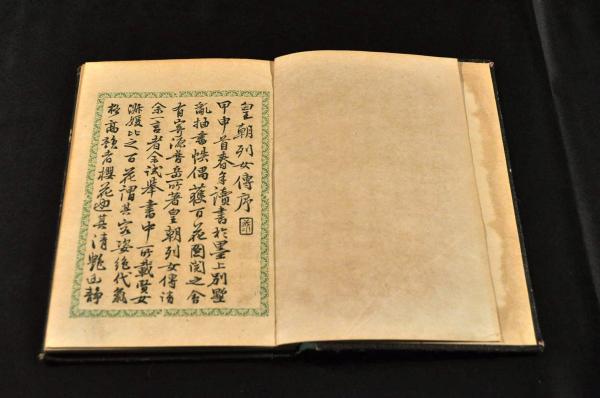 皇朝列女傳序
甲申首春余讀書於墨上別墅
亂抽書帙偶獲百花圖閲之會
有寄源普岳所著皇朝列女傳請
余一言者余試舉書中所載賢女
淑媛比之百花謂其容姿絶代
格高韻者櫻花也其清艶幽靜